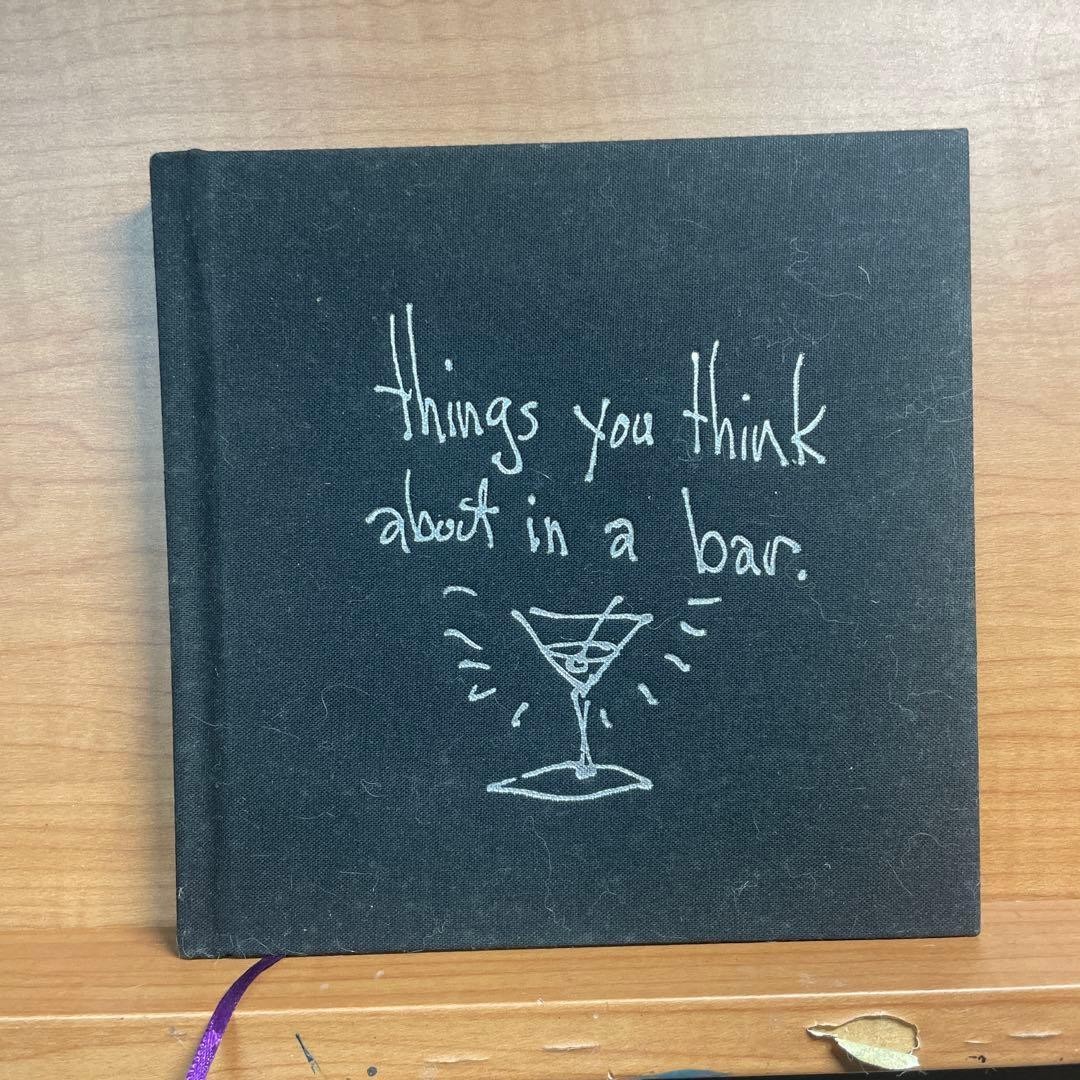 things you think
about in a bar.